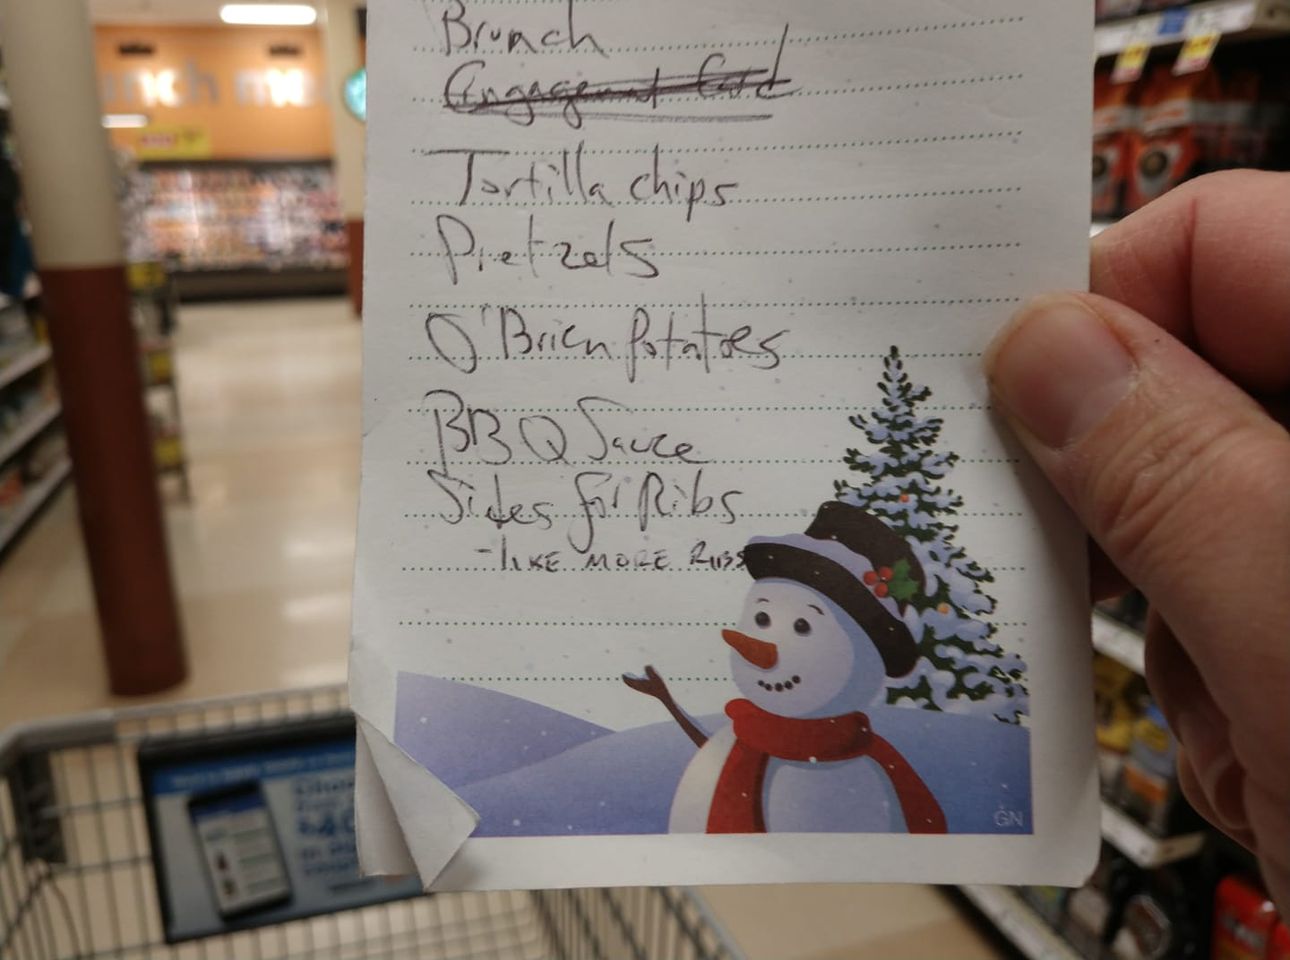 Brunch
Engagement Card
Tortilla chips
Pretzels
O'Brien Potatoes
BBQ Sauce
Sides for Ribs
- LIKE MORE RIBS
GN